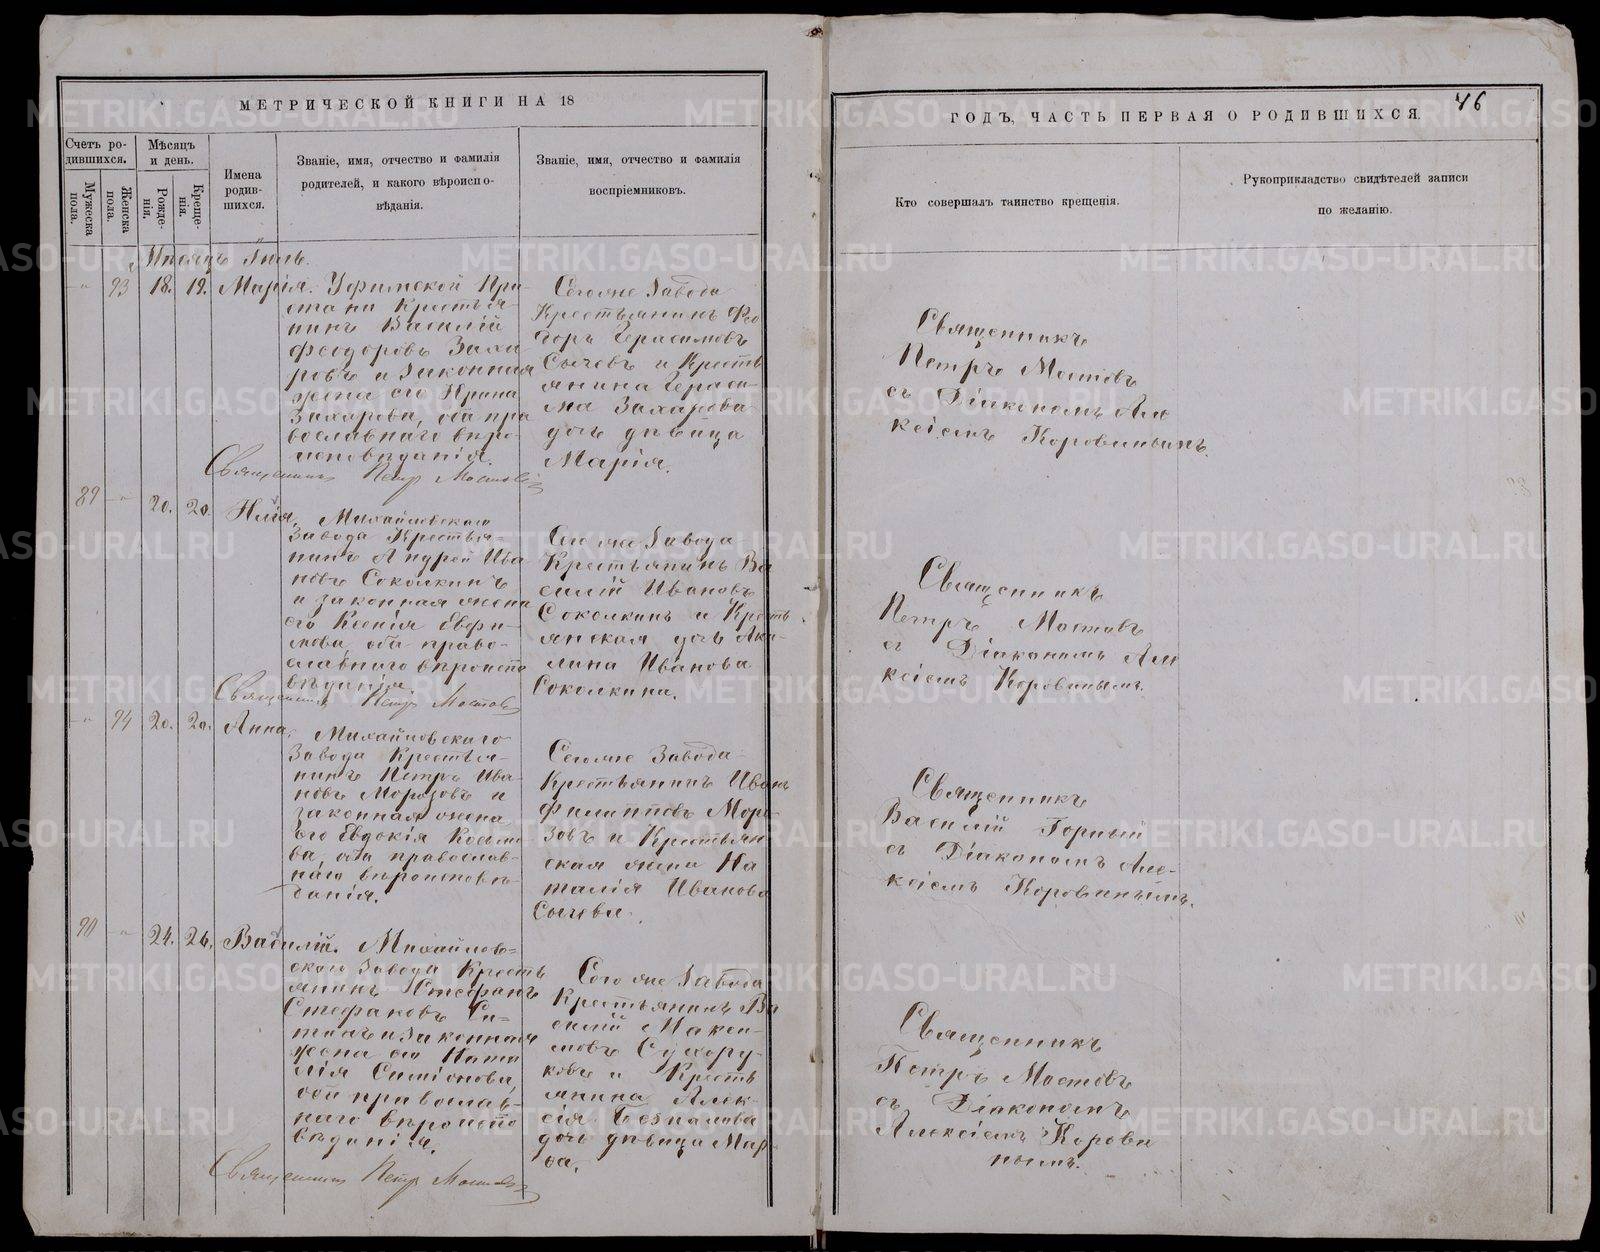 МЕТРИЧЕСКОЙ КНИГИ НА 18
Счетъ ро-
дившихся.
Мужеска
пола.
Женска
пола.
Мѣсяцъ
и день.
Рожде-
нія.
Креще-
нія.
Имена
родив-
шихся.
Званіе, имя, отчество и фамилія
родителей, и какого вѣроиспо-
вѣданія.
Званіе, имя, отчество и фамилія
воспріемниковъ.
Мѣсяцъ Іюль.
93 18. 19. Марія.
Уфимской При-
стани Крестья-
нинъ Василій
Феодоровъ Заха-
ровъ и Законная
жена его Ирина
Захарова, оба пра
вославнаго вѣро-
исповѣданія.
Священникъ Петръ Мостовъ
Сегоже Завода
Крестьянинъ Фео
доръ Герасимовъ
Сычевъ и Кресть
янина Гераси-
ма Захарова
дочь дѣвица
Марія.
89 20. 20. Илія.
Михайловскаго
Завода Крестья-
нинъ Андрей Ива
новъ Соколкинъ
и законная жена
его Ксенія Евфи-
мова, оба право-
славнаго вѣроиспо
вѣданія.
Священникъ Петръ Мостовъ
Сегоже Завода
Крестьянинъ Ва
силій Ивановъ
Соколкинъ и Кресть
янская дочь Аку-
лина Иванова
Соколкина.
94 20. 20. Анна.
Михайловскаго
Завода Крестья-
нинъ Петръ Ива-
новъ Морозовъ и
законная жена
его Евдокія Козьмо
ва, оба православ-
наго вѣроисповѣ-
данія.
Сегоже Завода
Крестьянинъ Иванъ
Филипповъ Моро
зовъ и Крестьян
ская жена На
талія Иванова
Сычева.
90 24. 26. Василій.
Михайлов=
скаго Завода Кресть
янинъ Стефанъ
Стефановъ Си=
тинъ и Законная
жена его Ната
лія Симіонова,
оба православ-
наго вѣроиспо
вѣданія.
Священникъ Петръ Мостовъ
Сегоже Завода
Крестьянинъ Ва
силій Макси-
мовъ Сухору-
ковъ и Кресть
янина Алек-
сія Безпалова
дочь дѣвица Мар
ѳа.
ГОДЪ, ЧАСТЬ ПЕРВАЯ О РОДИВШИХСЯ.
46
Кто совершалъ таинство крещенія.
Рукоприкладство свидѣтелей записи
по желанію.
Священникъ
Петръ Мостовъ
съ Діакономъ Але
ксіемъ Коровинымъ.
Священникъ
Петръ Мостовъ
съ Діакономъ Але
ксіемъ Коровинымъ.
Священникъ
Василій Горный
съ Діакономъ Але-
ксіемъ Коровинымъ.
Священникъ
Петръ Мостовъ
съ Діакономъ
Алексіемъ Корови
нымъ.
METRIKI.GASO-URAL.RU